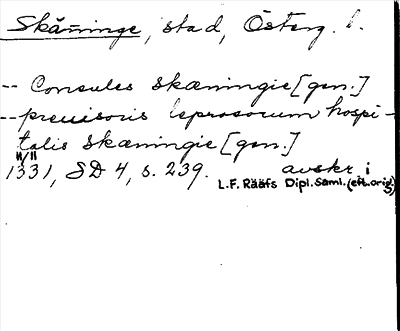 Skänninge, stad, Österg. l.
-- Consules skæningie [gen.]
-- preuisoris leprosorum hospi-
talis skæningie [gen.]
11/11
1331, SD 4, s. 239. avskr. i
L.F. Rääfs Dipl. Saml. (eft. orig.)